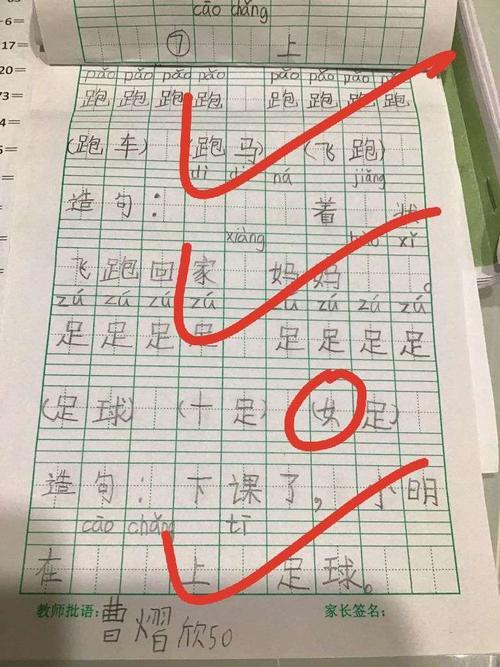 cāo chǎng
⑦ 上
pǎo pǎo pǎo pǎo pǎo pǎo pǎo pǎo
跑 跑 跑 跑 跑 跑 跑 跑
(跑车) (跑马) (飞跑)
dì di ná jiǎng
造句： 着 状
xiàng xǐ
飞跑回家 妈妈。
zú zú zú zú zú zú zú zú
足 足 足 足 足 足 足 足
(足球) (十足) (女足)
造句：下课了，小明
cāo chǎng tī
在 上 足球。
教师批语： 家长签名：
曹熠欣50